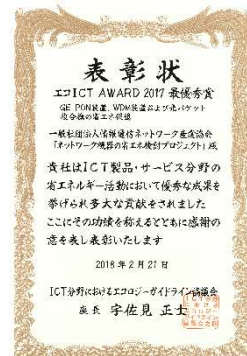 表彰状
エコICT AWARD 2017 最優秀賞
GE-PON装置、WDM装置および光パケット
複合機の省エネ促進
一般社団法人情報通信ネットワーク産業協会
「ネットワーク機器の省エネ検討プロジェクト」殿
貴社はICT製品・サービス分野の
省エネルギー活動において優秀な成果を
挙げられ多大な貢献をされました
ここにその功績を称えるとともに感謝の
意を表し表彰いたします
2018年2月21日
ICT分野におけるエコロジーガイドライン協議会
座長 宇佐見 正士